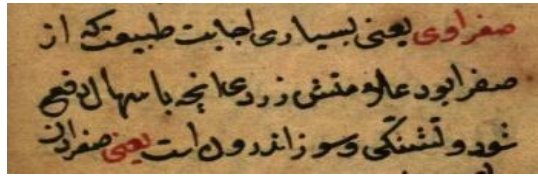 صفراوی یعنی بسیاری اجابت طبیعت که از
صفرا بود علامتش زردی انچه باسهال دفع
شود و تشنگی و سوز اندرون است یعنی صفرا دران